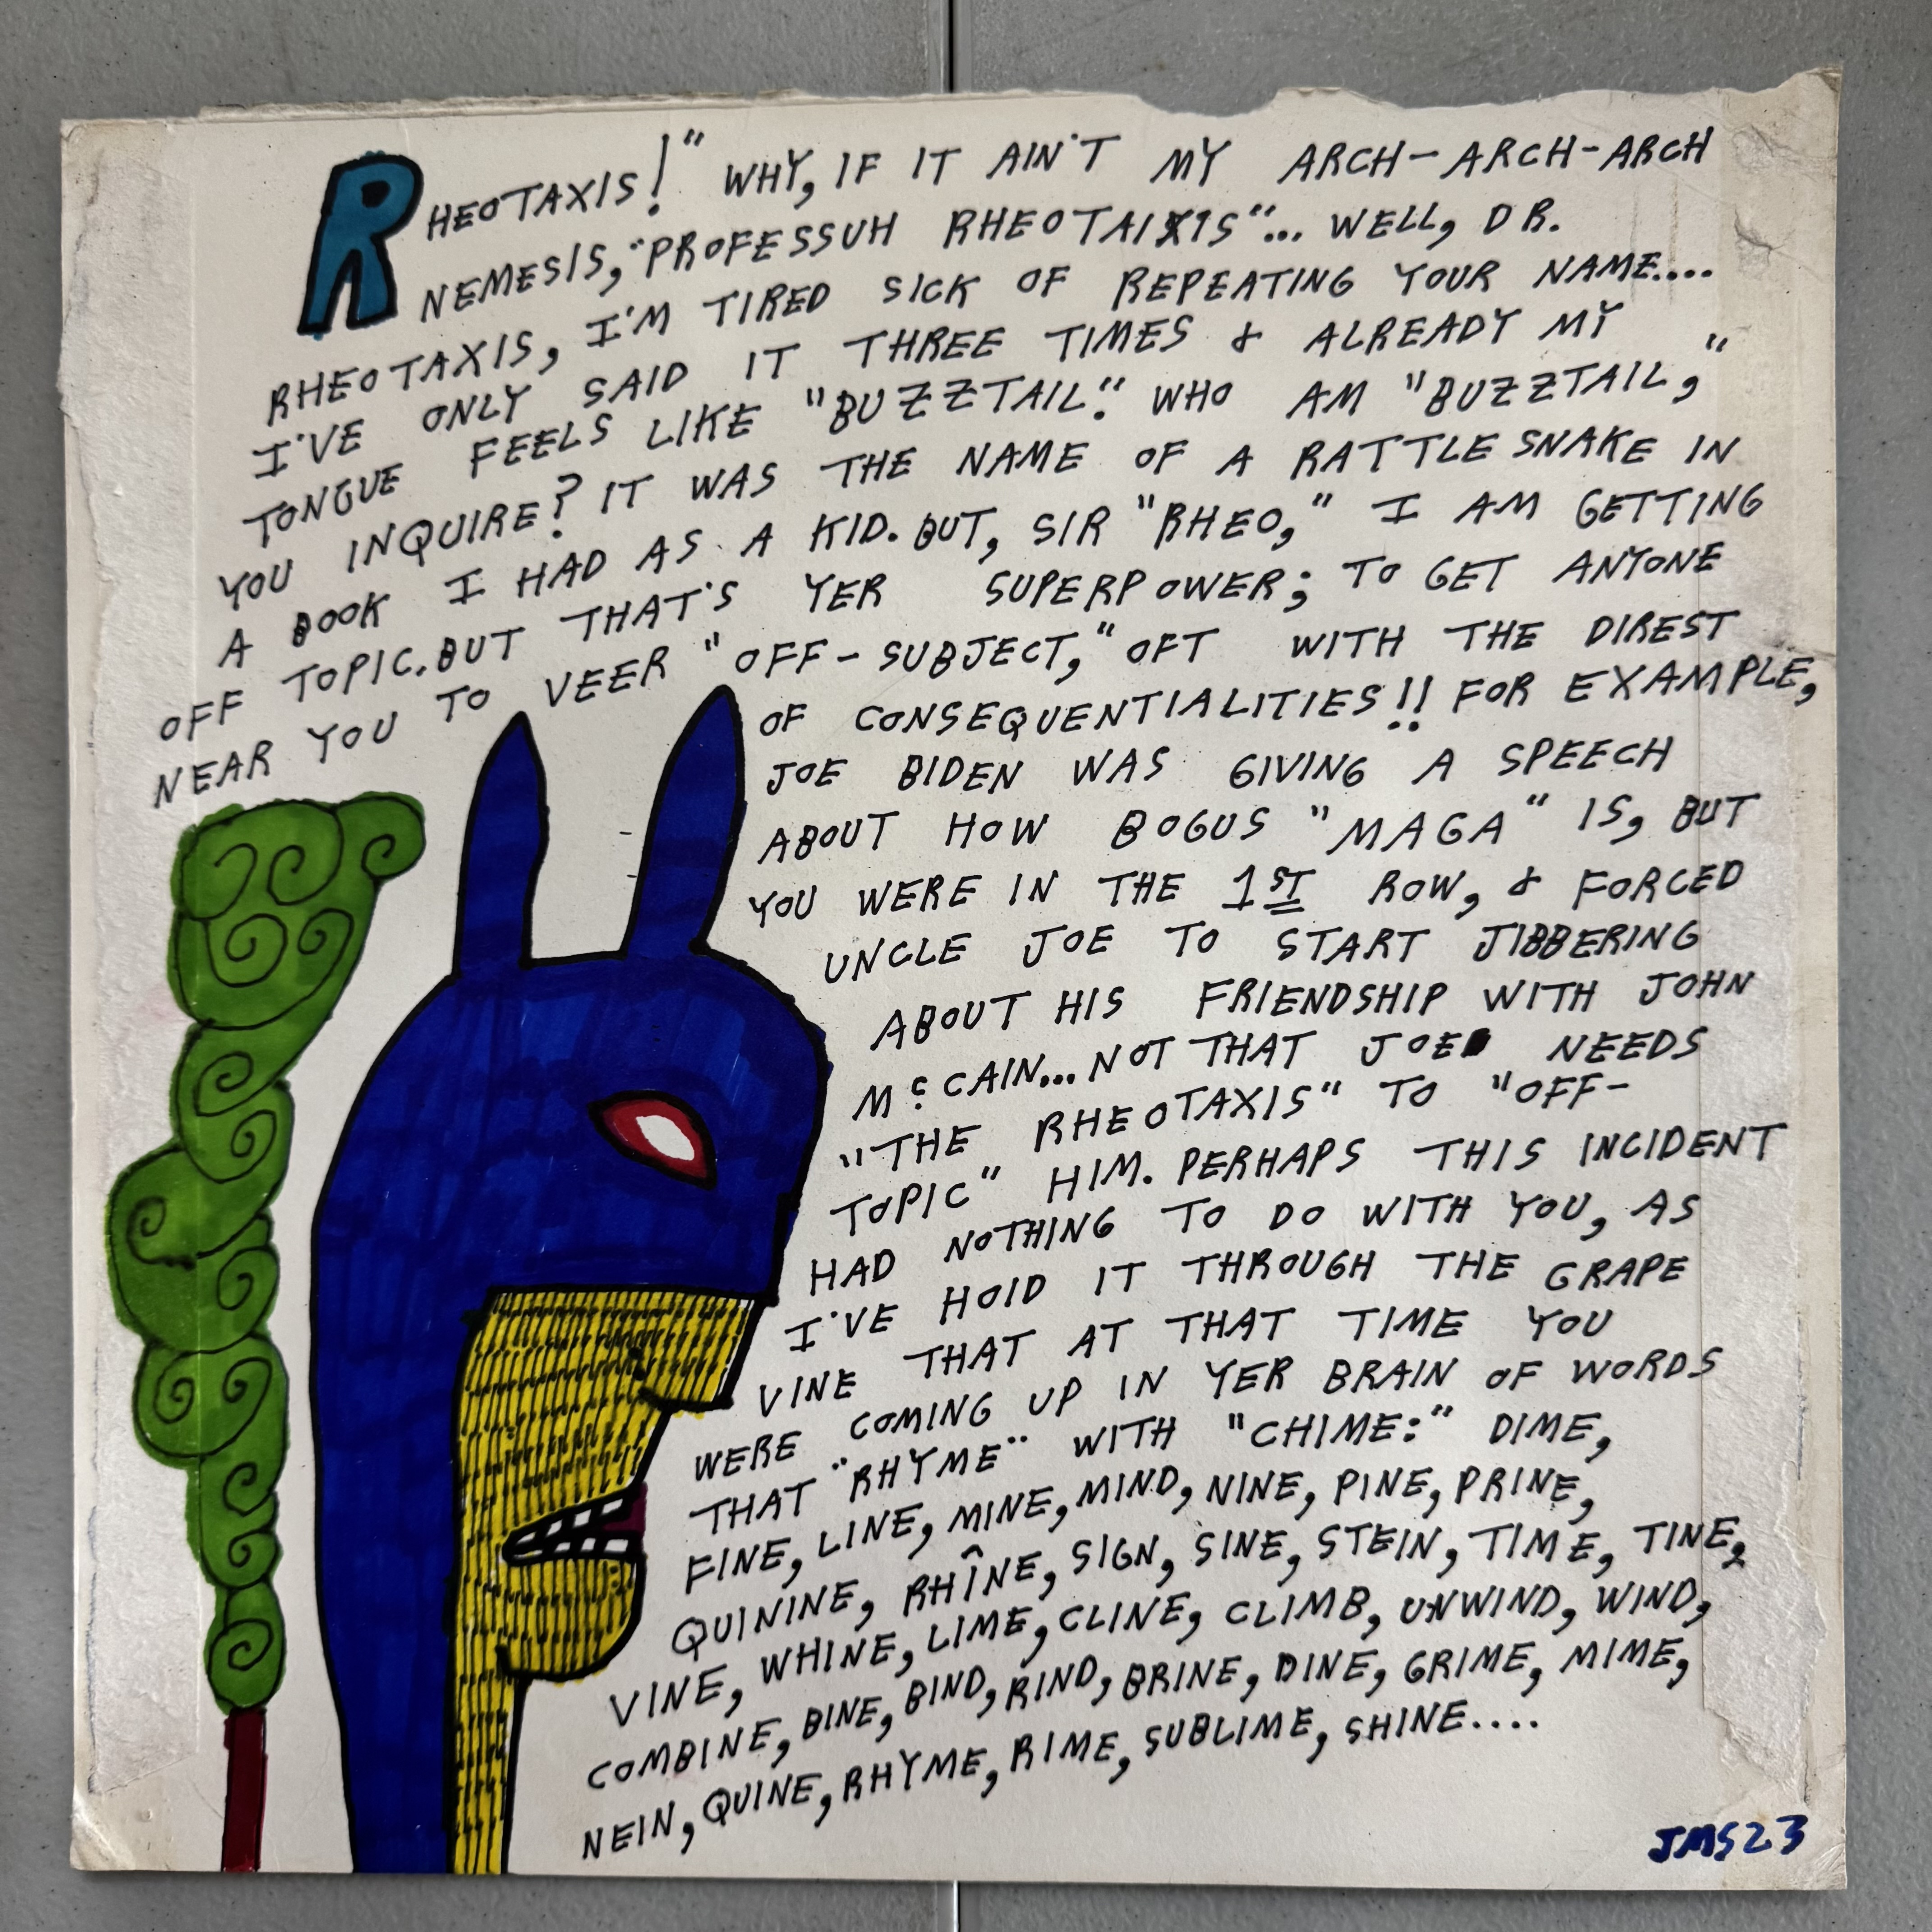 RHEOTAXIS!" WHY, IF IT AIN'T MY ARCH-ARCH-ARCH
NEMESIS, "PROFESSUH RHEOTAIXIS"... WELL, DR.
RHEOTAXIS, I'M TIRED SICK OF REPEATING YOUR NAME....
I'VE ONLY SAID IT THREE TIMES & ALREADY MY
TONGUE FEELS LIKE "BUZZTAIL." WHO AM "BUZZTAIL,"
YOU INQUIRE? IT WAS THE NAME OF A RATTLESNAKE IN
A BOOK I HAD AS A KID. BUT, SIR "RHEO," I AM GETTING
OFF TOPIC. BUT THAT'S YER SUPERPOWER; TO GET ANYONE
NEAR YOU TO VEER "OFF-SUBJECT," OFT WITH THE DIREST
OF CONSEQUENTIALITIES!! FOR EXAMPLE,
JOE BIDEN WAS GIVING A SPEECH
ABOUT HOW BOGUS "MAGA" IS, BUT
YOU WERE IN THE 1ST ROW, & FORCED
UNCLE JOE TO START JIBBERING
ABOUT HIS FRIENDSHIP WITH JOHN
McCAIN... NOT THAT JOE NEEDS
"THE RHEOTAXIS" TO "OFF-
TOPIC" HIM. PERHAPS THIS INCIDENT
HAD NOTHING TO DO WITH YOU, AS
I'VE HOID IT THROUGH THE GRAPE
VINE THAT AT THAT TIME YOU
WERE COMING UP IN YER BRAIN OF WORDS
THAT "RHYME" WITH "CHIME:" DIME,
FINE, LINE, MINE, MIND, NINE, PINE, PRINE,
QUININE, RHÎNE, SIGN, SINE, STEIN, TIME, TINE,
VINE, WHINE, LIME, CLINE, CLIMB, UNWIND, WIND,
COMBINE, BINE, BIND, RIND, BRINE, DINE, GRIME, MIME,
NEIN, QUINE, RHYME, RIME, SUBLIME, SHINE....
JMS23